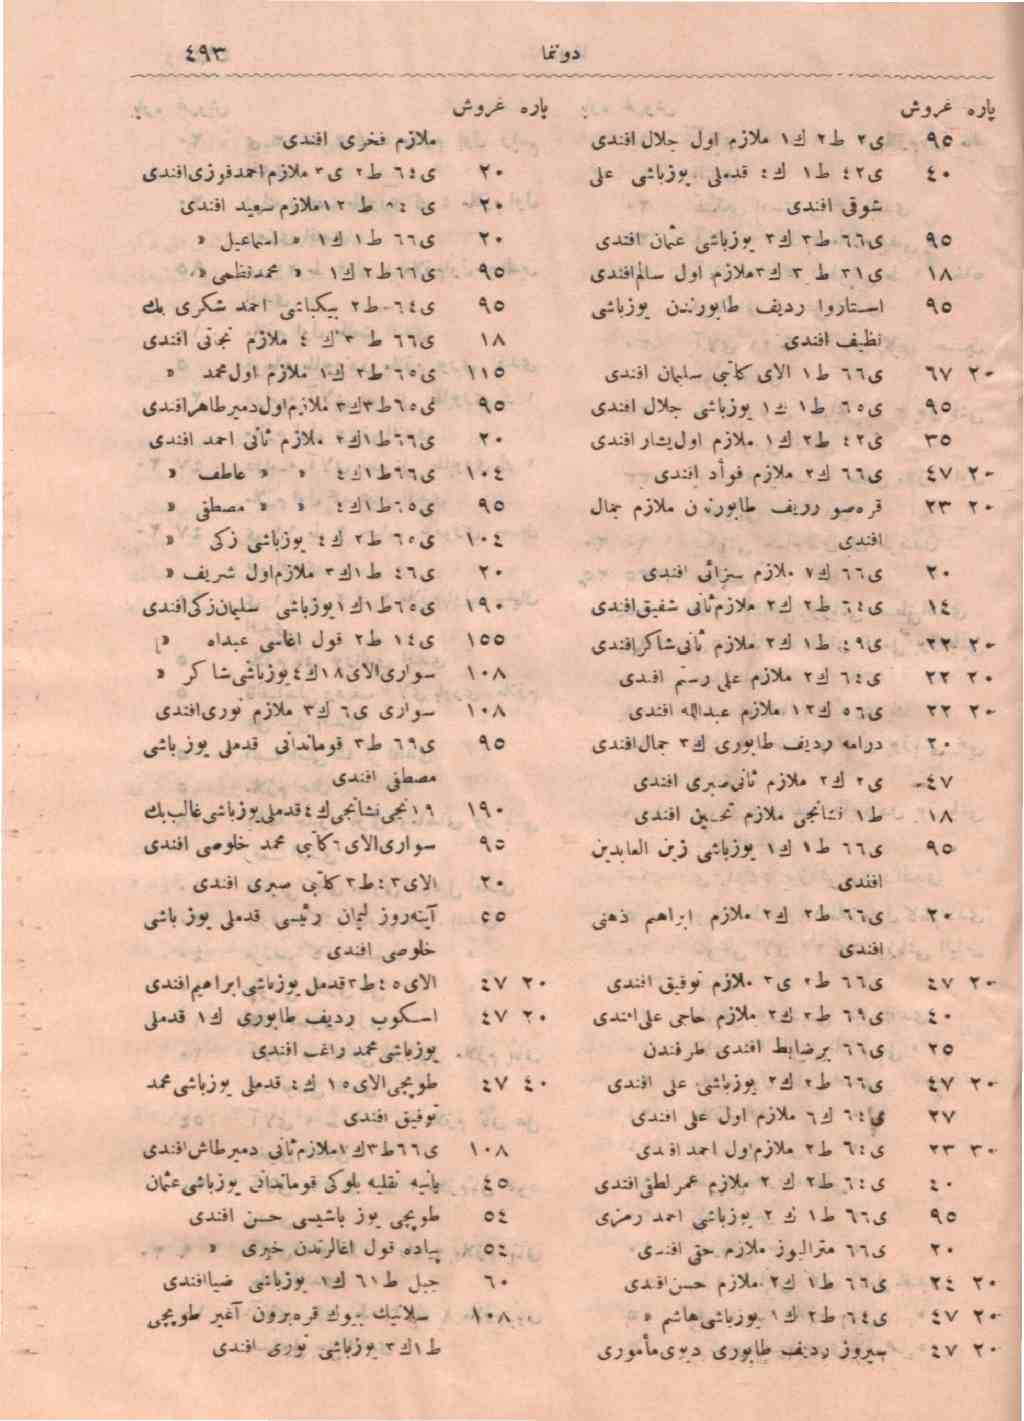 دوننما ٤٩٣
پاره غروش
٩٥ ی٢ ط٢ ك١ ملازم اول جلال افندی
٤٠ ی٤٢ ط١ ك٤ قدملی یوزباشی علی
شوقی افندی
٩٥ ی٦٦ ط٣ ك٣ یوزباشی عثمان افندی
١٨ ی٣١ ط٣ ك٣ ملازم اول سالم افندی
٩٥ استاروا ردیف طابورندن یوزباشی
نظیف افندی
٢٠ ٦٧ ی٦٦ ط١ الای كاتبی سلیمان افندی
٩٥ ی٦٥ ط١ ك١ یوزباشی جلال افندی
٣٥ ی٤٢ ط٢ ك١ ملازم اول یشار افندی
٢٠ ٤٧ ی٦٦ ك٢ ملازم فوأد افندی
٢٠ ٢٣ قره‌صو ردیف طابورندن ملازم جمال
افندی
٢٠ ی٦٦ ك٧ ملازم سزائی افندی
١٤ ی٦٤ ط٢ ك٢ ملازم ثانی شفیق افندی
٢٠ ٢٢ ی٤٩ ط١ ك٢ ملازم ثانی شاكر افندی
٢٠ ٢٢ ی٦٤ ك٢ ملازم علی رستم افندی
٢٠ ٢٢ ی٥٦ ك١٢ ملازم عبدالله افندی
٢٠ درامه ردیف طابوری ك٣ جمال افندی
٤٧ ی٢ ك٢ ملازم ثانی صبری افندی
١٨ ط١ نشانجی ملازم تحسین افندی
٩٥ ی٦٦ ط١ ك١ یوزباشی زین العابدین
افندی
٢٠ ی٦٦ ط٢ ك٢ ملازم ابراهیم ذهنی
افندی
٢٠ ٤٧ ی٦٦ ط٢ ی٣ ملازم توفیق افندی
٤٠ ی٦٩ ط٢ ك٢ ملازم حاجی علی افندی
٢٥ ی٦٦ برضابط افندی طرفندن
٢٠ ٤٧ ی٦٦ ط٢ ك٢ یوزباشی علی افندی
٢٧ ی٦٤ ك٦ ملازم اول علی افندی
٣٠ ٢٣ ی٦٤ ط٢ ملازم اول احمد افندی
٤٠ ی٦٤ ط٢ ك٢ ملازم عمر لطفی افندی
٩٥ ی٦٦ ط١ ك٢ یوزباشی احمد رمزی
٢٠ ی٦٦ مترالیوز ملازم حقی افندی
٢٠ ٢٤ ی٦٦ ط١ ك٢ ملازم حسن افندی
٢٠ ٤٧ ی٦٤ ط٢ ك١ یوزباشی هاشم »
٢٠ ٤٧ سیروز ردیف طابوری دپوی مأموری
پاره غروش
ملازم فخری افندی
٢٠ ی٦٤ ط٢ ی٣ ملازم احمد فوزی افندی
٢٠ ملازم سعید افندی
٢٠ ی٦٦ ط١ ك١ » اسماعیل »
٩٥ ی٦٦ ط٢ ك١ » محمد فظمی »
٩٥ ی٦٤ ط٢ بیكباشی احمد شكری بك
١٨ ی٦٦ ط٣ ك٤ ملازم نجاتی افندی
١١٥ ی٦٥ ط٢ ك١ ملازم اول محمد »
٩٥ ی٦٥ ط٣ ك٣ ملازم اول دمیر طاهر افندی
٢٠ ی٦٦ ط١ ك٢ ملازم ثانی احمد افندی
١٠٤ ی٦٦ ط١ ك٤ » » عاطف »
٩٥ ی٦٥ ط١ ك٤ » » مصطفی »
١٠٤ ی٦٥ ط٢ ك٤ یوزباشی زكی »
٢٠ ی٤٦ ط١ ك٣ ملازم اول شریف »
١٩٠ ی٦٥ ط١ ك١ یوزباشی سلیمان زكی افندی
١٥٥ ی١٤ ط٢ قول اغاسی »
١٠٨ سواری الای١٨ ك٤ یوزباشی شاكر »
١٠٨ سواری ی٦ ك٣ ملازم نوری افندی
٩٥ ی٦٩ ط٣ قوماندانی قدملی یوزباشی
مصطفی افندی
١٩٠ ١٩نجی نشانجی ك٤ قدملی یوزباشی غالب بك
٩٥ سواری الای٦ كاتبی محمد خلوصی افندی
٢٠ الای٤٣ ط٣ كاتبی صبری افندی
٥٥ آینه‌روز لیمان رئیسی قدملی یوزباشی
خلوصی افندی
٢٠ ٤٧ الای٤٥ ط٣ قدملی یوزباشی ابراهیم افندی
٢٠ ٤٧ اسكوب ردیف طابوری ك١ قدملی
یوزباشی محمد راغب افندی
٤٠ ٤٧ طوپجی الای١٥ ك٤ قدملی یوزباشی محمد
توفیق افندی
١٠٨ ی٦٦ ط٣ ك١ ملازم ثانی دمیرطاش افندی
٤٥ یانیه نقلیه بلوكی قوماندانی یوزباشی عثمان
٥٤ طوپجی یوز باشیسی حسن افندی
٥٤ پیاده قول اغالرندن خیری »
٦٠ جبل ط٦١ ك١ یوزباشی ضیا افندی
١٠٨ سلانیك بیوك قره‌برون آغیر طوپجی
ط١ ك٣ یوزباشی نوری افندی